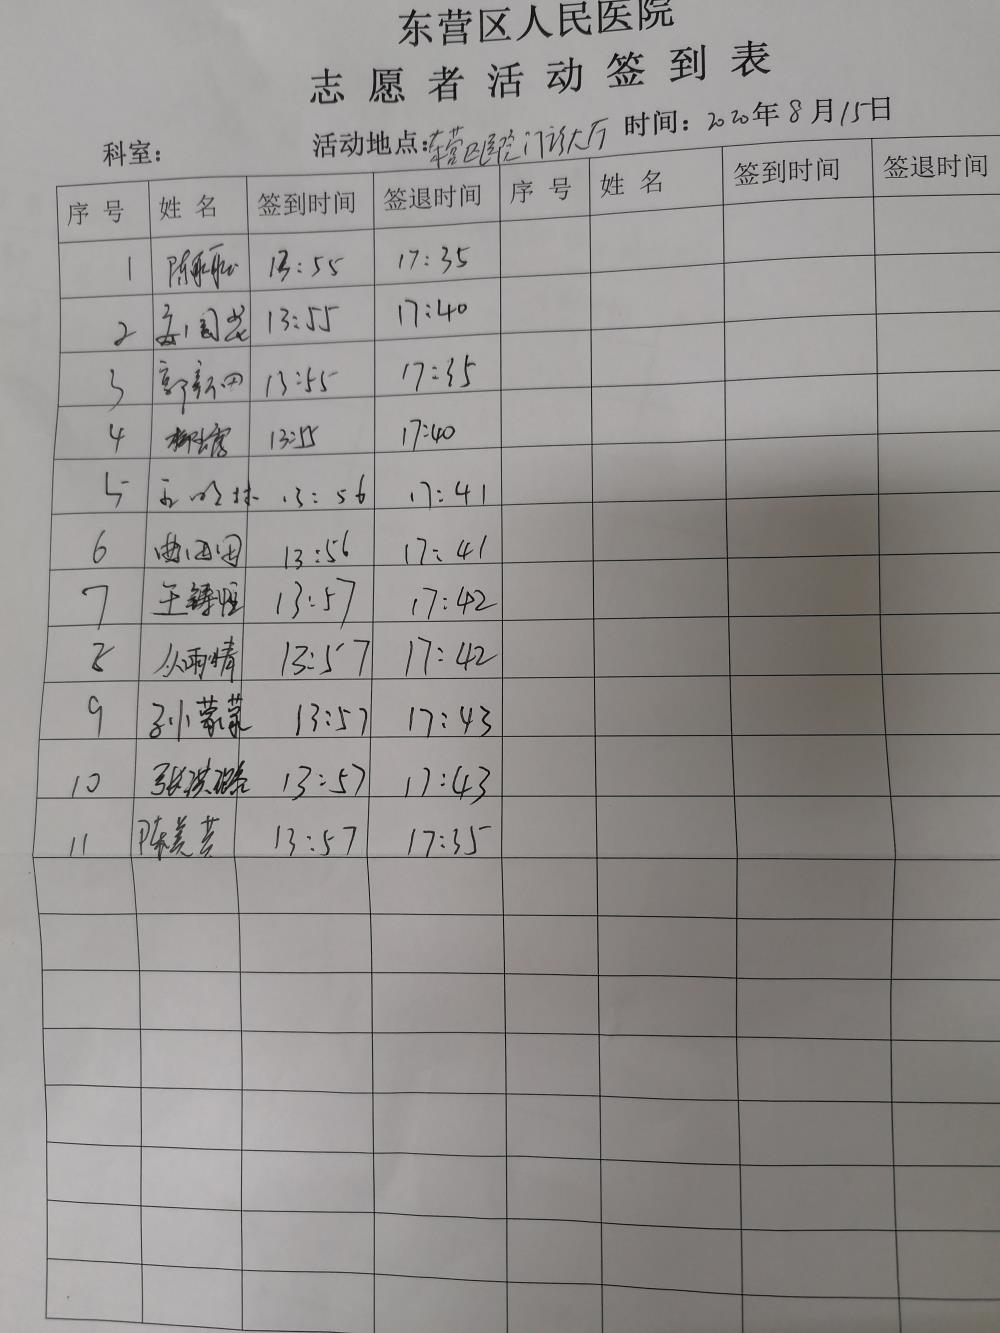 东营区人民医院
志愿者活动签到表
科室： 活动地点：东营区医院门诊大厅 时间：2020年8月15日
序号 姓名 签到时间 签退时间 序号 姓名 签到时间 签退时间
1 陈 13:55 17:35
2 13:55 17:40
3 郭新田 13:55 17:35
4 柳 13:55 17:40
5 13:56 17:41
6 曲 13:56 17:41
7 王铸恒 13:57 17:42
8 从雨晴 13:57 17:42
9 孙蒙蒙 13:57 17:43
10 张洪 13:57 17:43
11 陈美芸 13:57 17:35